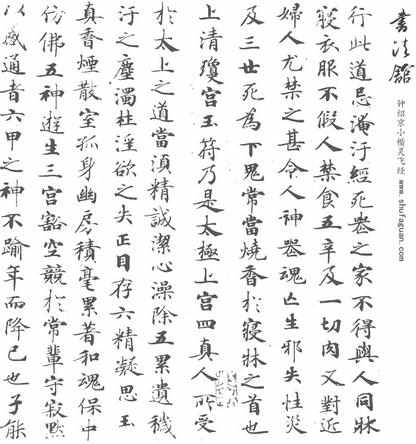 書法館
钟绍京小楷灵飞经 www.shufaguan.com
行此道忌淹汙經死喪之家不得與人同牀
寢衣服不假人禁食五辛及一切肉又對近
婦人尤禁之甚令人神喪魂亡生邪失性災
及三世死為下鬼常當燒香於寢牀之首也
上清瓊宮玉符乃是太極上宮四真人所受
於太上之道當須精誠潔心澡除五累遺穢
汙之塵濁杜淫欲之失正目存六精凝思玉
真香煙散室孤身幽房積毫累著和魂保中
仿佛五神遊生三宮豁空競於常輩守寂默
以感通者六甲之神不踰年而降已也子能